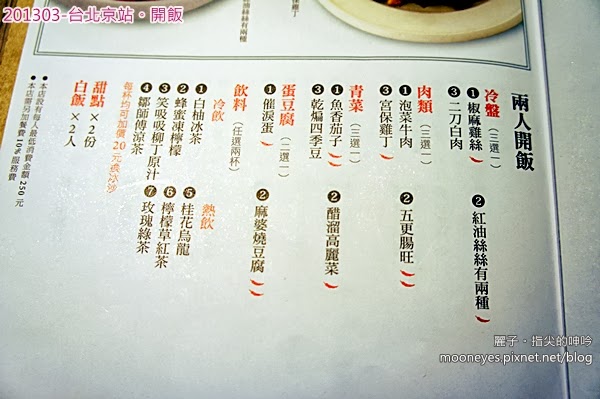 201303-台北京站。開飯
兩人開飯
冷盤 (三選一)
① 椒麻雞絲 ② 紅油絲絲有兩種
③ 二刀白肉
肉類 (三選一)
① 泡菜牛肉 ② 五更腸旺
③ 宮保雞丁
青菜 (三選一)
① 魚香茄子 ② 醋溜高麗菜
③ 乾煸四季豆
蛋豆腐 (二選一)
① 催淚蛋 ② 麻婆燒豆腐
飲料 (任選兩杯)
冷飲 熱飲
① 白柚冰茶 ⑤ 桂花烏龍
② 蜂蜜凍檸檬 ⑥ 檸檬草紅茶
③ 笑吸吸柳丁原汁 ⑦ 玫瑰綠茶
④ 鄒師傅涼茶
每杯均可加價20元換冰沙
甜點×2份
白飯×2人
●本店設有每人最低消費金額250元
●本店需另加餐費10%服務費
麗子。指尖的呻吟
mooneyes.pixnet.net/blog